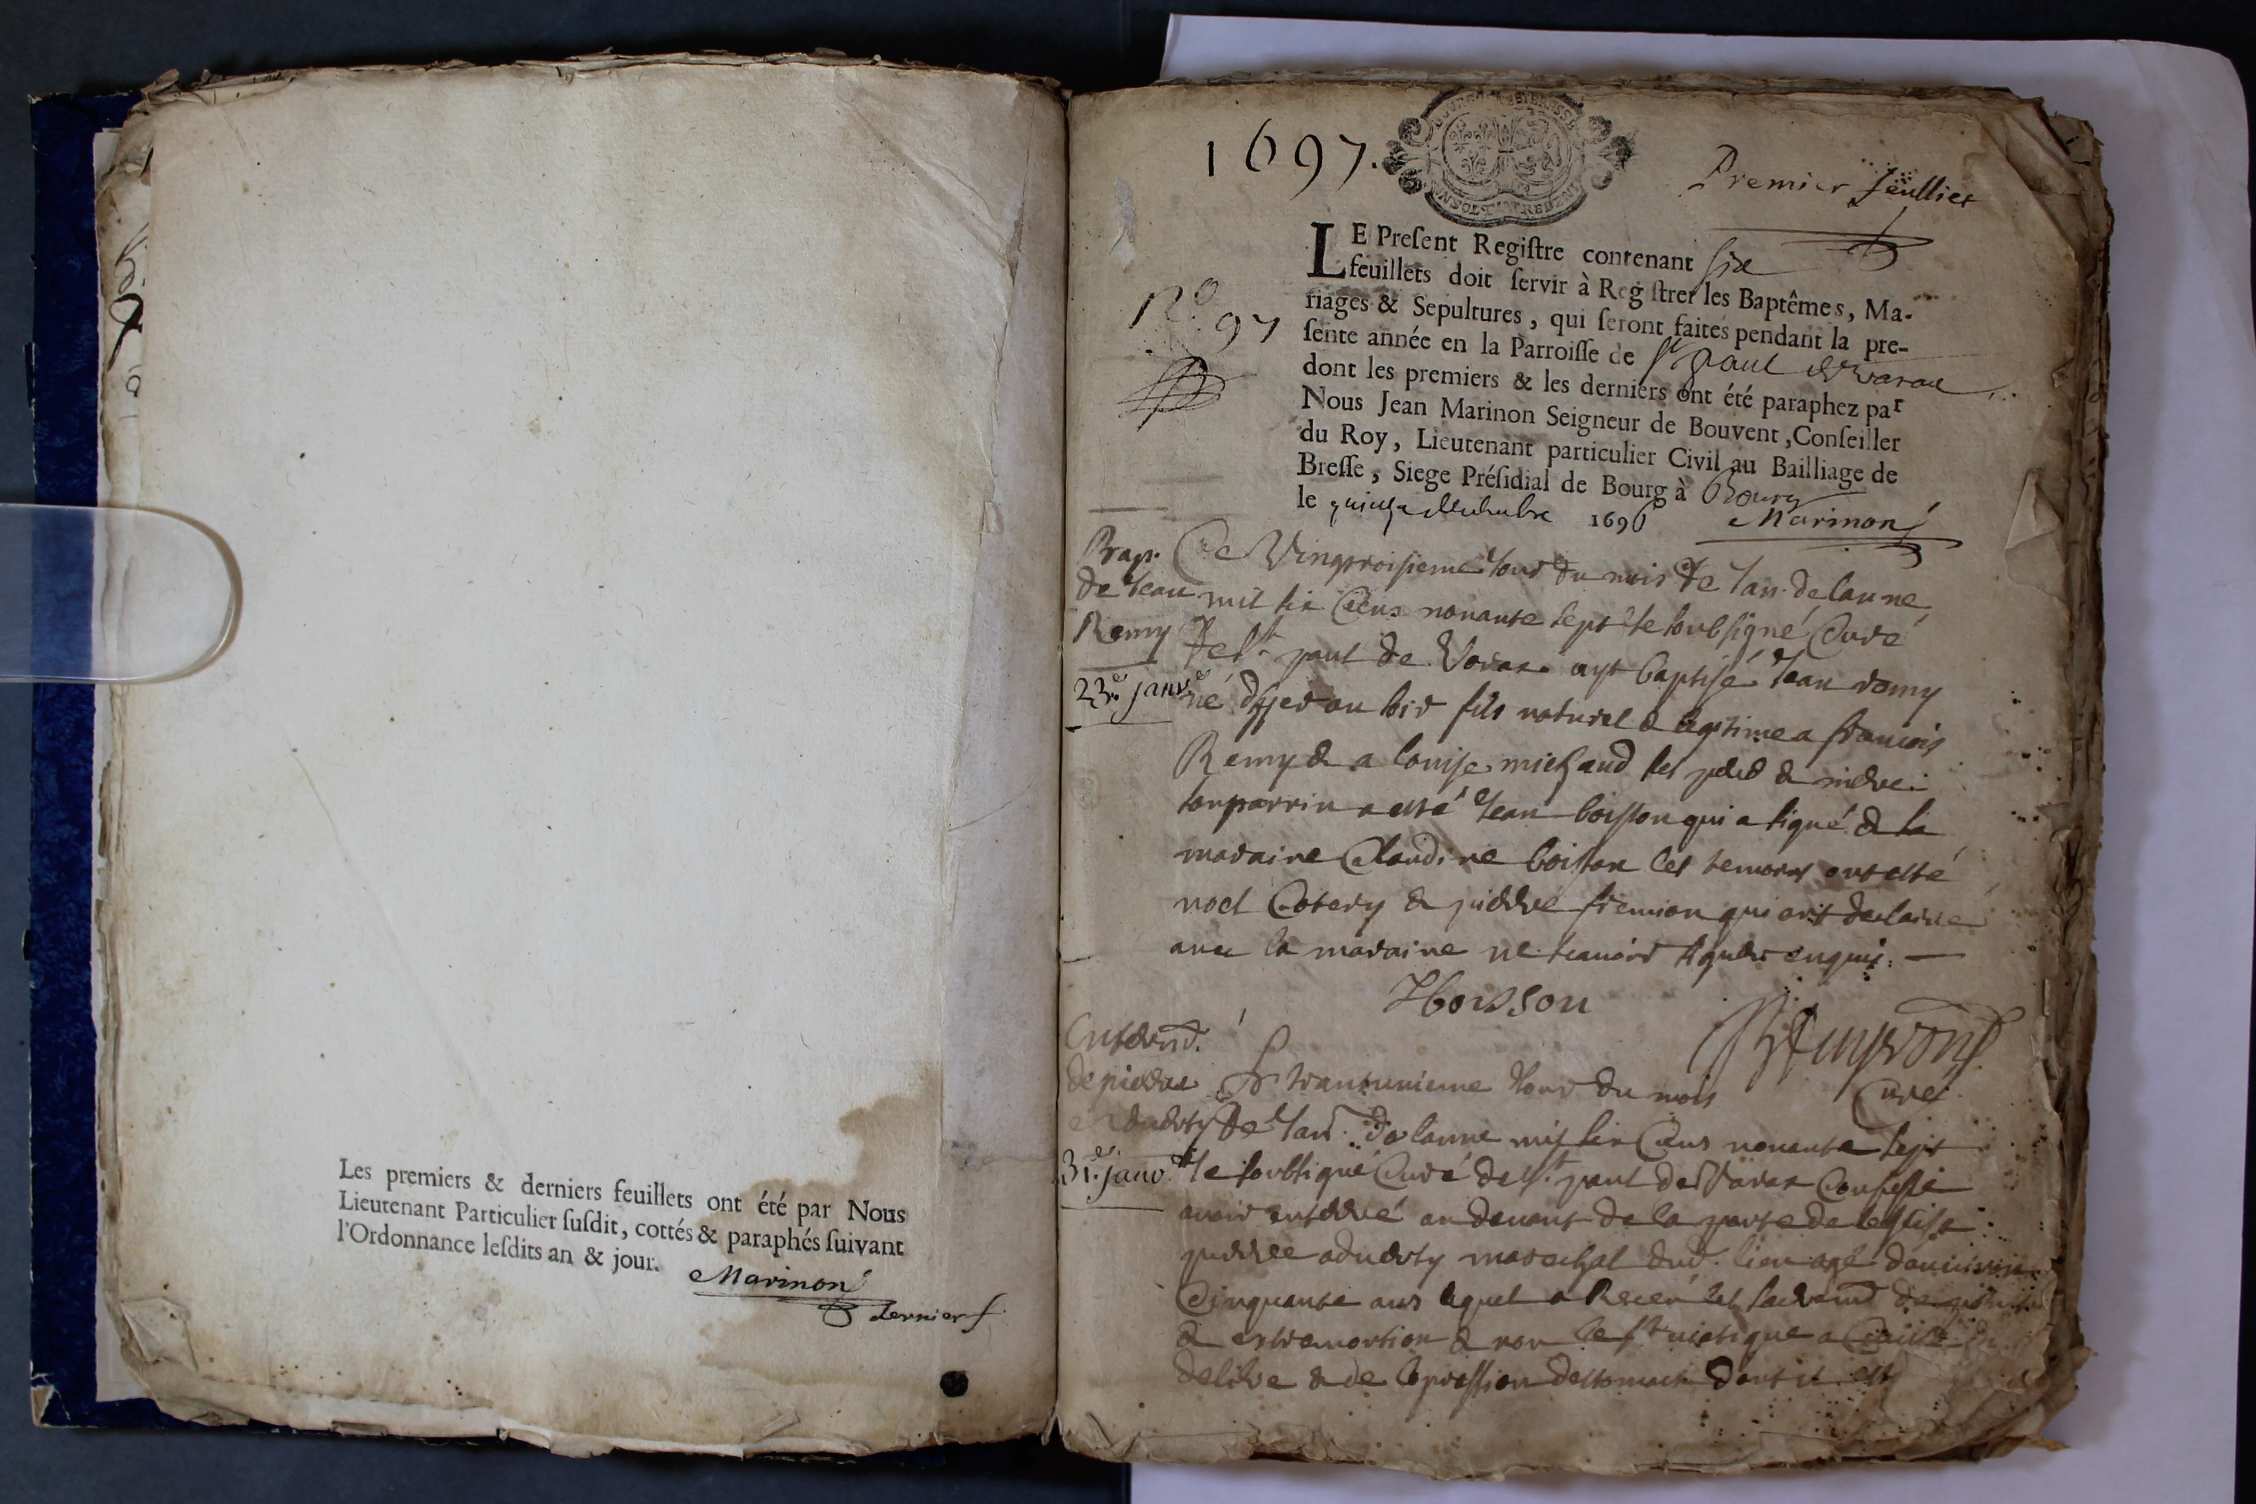 Les premiers & derniers feuillets ont été par Nous
Lieutenant Particulier ſuſdit, cottés & paraphés ſuivant
l'Ordonnance leſdits an & jour.
Marinon
dernier f
1697.
Premier feullier
LE Preſent Regiſtre contenant six
feuillets doit ſervir à Reg ſtrer les Baptêmes, Ma-
riages & Sepultures, qui ſeront faites pendant la pre-
ſente année en la Parroiſſe de St paul de varax
dont les premiers & les derniers ont été paraphez par
Nous Jean Marinon Seigneur de Bouvent, Conſeiller
du Roy, Lieutenant particulier Civil au Bailliage de
Breſſe, Siege Préſidial de Bourg à Bourg
le quinze decembre 1696
Marinon
No 97
Bap.
de Jean
Remy
23e janv.
Ce Vingtroisieme Jour du mois de Jan. de lanne
mil six Cens nonante sept Je soubsigné Curé
de St. paul de Varax ayt baptisé Jean remy
né dhjer au soir fils naturel & legitime a francois
Remy & a louise michaud ses pere & mere.
son parrin a esté Jean boisson qui a signé & la
maraine Claudine boisson les temoins ont esté
noel & pierre fremion qui ont declaire
avec la maraine ne scauoir signer enquis.
Boisson
Curé
Enterrd.
de pierre
31e janv.
Ce trantunieme Jour du mois
de Jan. de lanne mil six Cens nonante sept
Je soubsigné Curé de St. paul de Varax Confesse
avoir enterré au devant de la porte de leglise
pierre marechal dud. lieu agé
Cinquante ans lequel a Receu les sacremt de
& extremontion & non le st viatique a Cause
delire & de lopression destomach dont il est